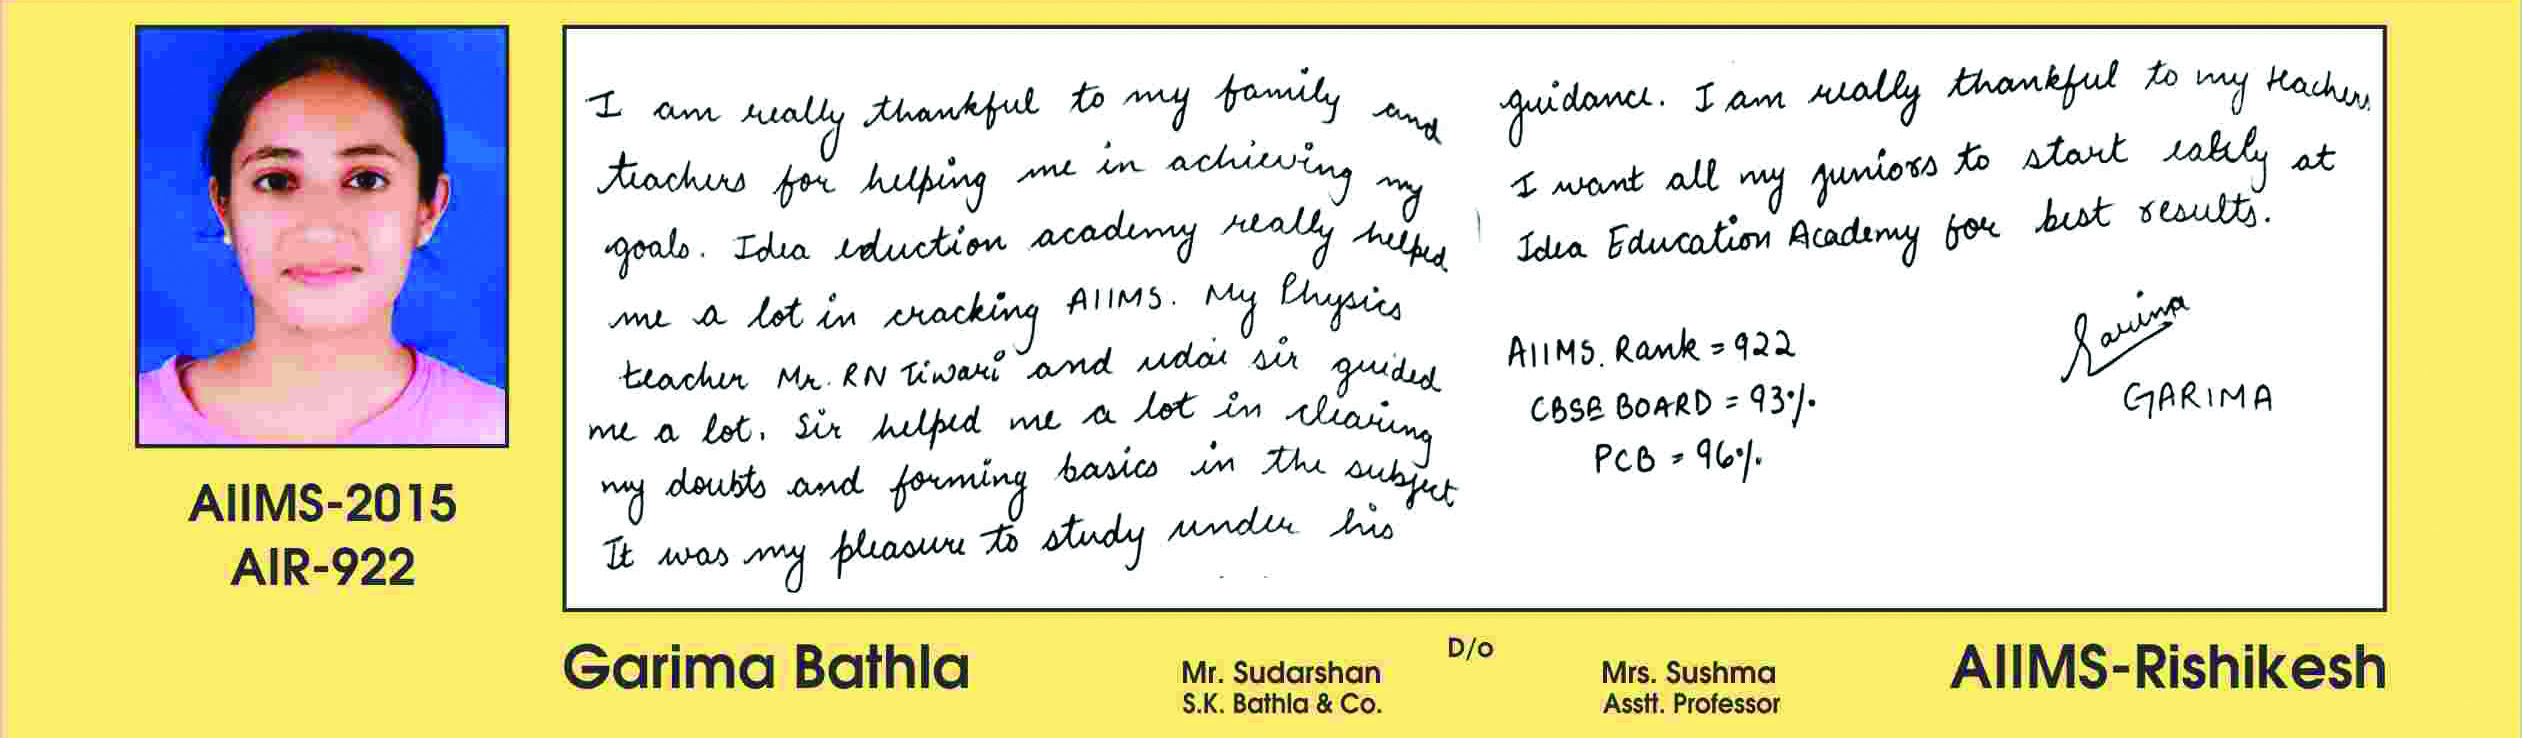 I am really thankful to my family and
teachers for helping me in achieving my
goals. Idea eduction academy really helped
me a lot in cracking AIIMS. My Physics
teacher Mr. RN Tiwari and udai sir guided
me a lot. Sir helped me a lot in clearing
my doubts and forming basics in the subject
It was my pleasure to study under his
guidance. I am really thankful to my teachers
I want all my juniors to start early at
Idea Education Academy for best results.
AIIMS. Rank = 922
CBSE BOARD = 93%.
PCB = 96%.
Garima
GARIMA
AIIMS-2015
AIR-922
Garima Bathla
D/o
Mr. Sudarshan
S.K. Bathla & Co.
Mrs. Sushma
Asstt. Professor
AIIMS-Rishikesh